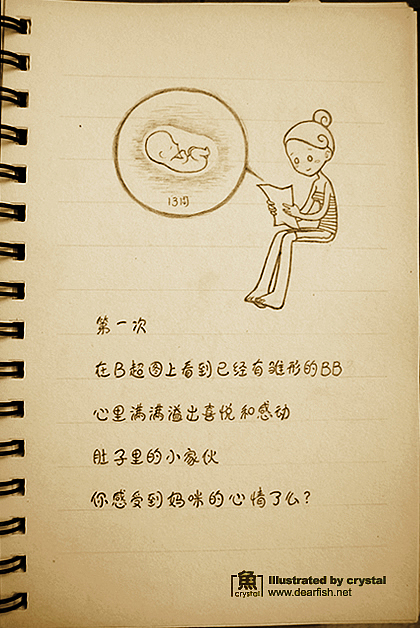 13周
第一次
在B超图上看到已经有雏形的BB
心里满满溢出喜悦和感动
肚子里的小家伙
你感受到妈咪的心情了么?
魚
crystal
Illustrated by crystal
www.dearfish.net